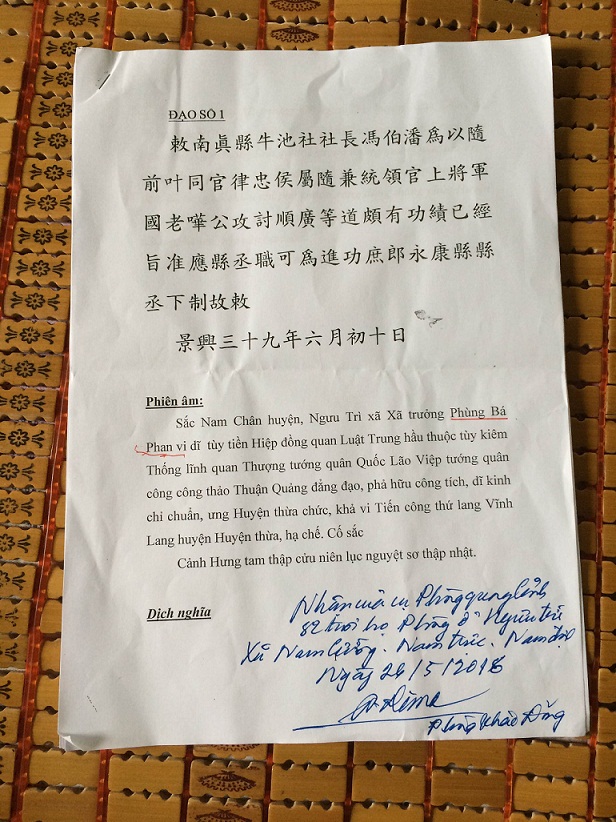 ĐẠO SỐ 1
敕南眞縣牛池社社長馮伯潘爲以隨
前叶同官律忠侯屬隨兼統領官上將軍
國老曄公攻討順廣等道頗有功績已經
旨准應縣丞職可爲進功庶郎永康縣縣
丞下制故敕
景興三十九年六月初十日
Phiên âm:
Sắc Nam Chân huyện, Ngưu Trì xã Xã trưởng Phùng Bá
Phan vi dĩ tùy tiền Hiệp đồng quan Luật Trung hầu thuộc tùy kiêm
Thống lĩnh quan Thượng tướng quân Quốc Lão Việp tướng quân
công công thảo Thuận Quảng đẳng đạo, phả hữu công tích, dĩ kinh
chỉ chuẩn, ưng Huyện thừa chức, khả vi Tiến công thứ lang Vĩnh
Lang huyện Huyện thừa, hạ chế. Cố sắc
Cảnh Hưng tam thập cửu niên lục nguyệt sơ thập nhật.
Dịch nghĩa
82 tuổi họ Phùng ở Ngưu trì
Xã Nam Cường. Nam trực. Nam định
Ngày 26/5/2016
Phùng Khắc Đăng